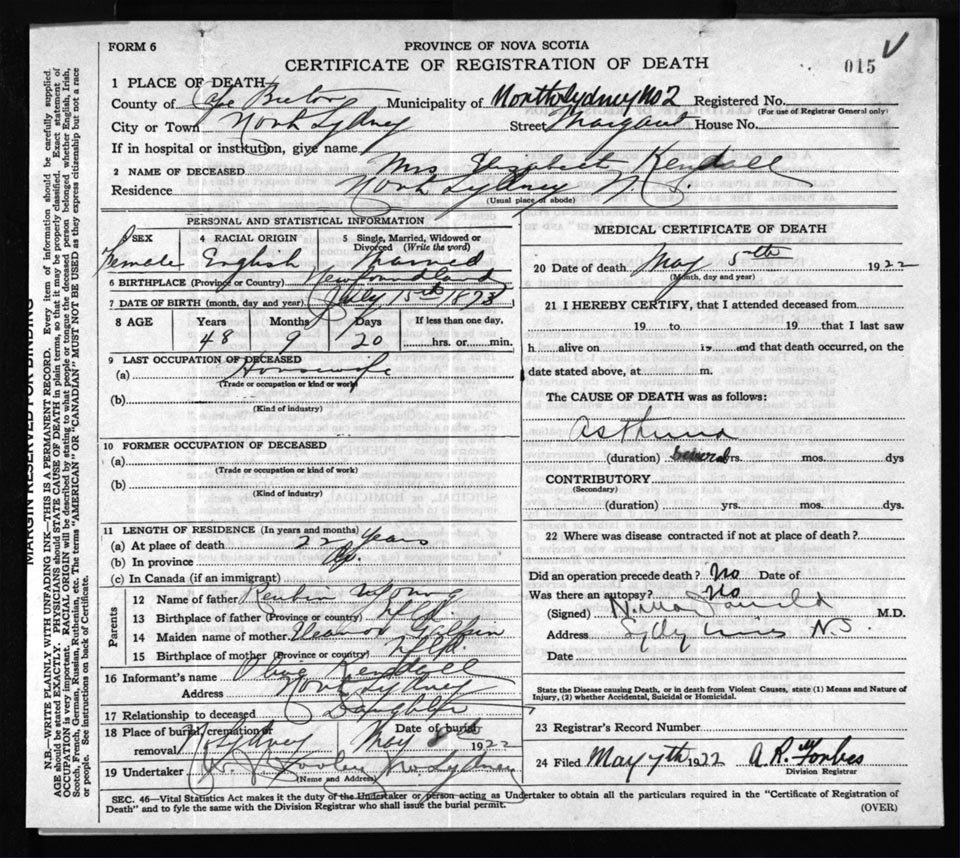 FORM 6
PROVINCE OF NOVA SCOTIA
CERTIFICATE OF REGISTRATION OF DEATH
015
1 PLACE OF DEATH
County of Cape Breton Municipality of North Sydney No 2 Registered No.
(For use of Registrar General only)
City or Town North Sydney Street Margaret House No.
If in hospital or institution, give name
2 NAME OF DECEASED Mrs Elizabeth Kendell
Residence North Sydney N.S.
(Usual place of abode)
PERSONAL AND STATISTICAL INFORMATION
3 SEX Female
4 RACIAL ORIGIN English
5 Single, Married, Widowed or Divorced (Write the word) Married
6 BIRTHPLACE (Province or Country) Newfoundland
7 DATE OF BIRTH (month, day and year) July 15th 1873
8 AGE Years 48 Months 9 Days 20 If less than one day, hrs. or min.
9 LAST OCCUPATION OF DECEASED
(a) Housewife
(Trade or occupation or kind or work)
(b)
(Kind of industry)
10 FORMER OCCUPATION OF DECEASED
(a)
(Trade or occupation or kind of work)
(b)
(Kind of industry)
11 LENGTH OF RESIDENCE (In years and months)
(a) At place of death 22 years
(b) In province
(c) In Canada (if an immigrant)
Parents
12 Name of father Reuben Young
13 Birthplace of father (Province or country) Nfld.
14 Maiden name of mother Eleanor
15 Birthplace of mother (Province or country) Nfld.
16 Informant's name Olive Kendell
Address North Sydney
17 Relationship to deceased Daughter
18 Place of burial, cremation or removal No Sydney Date of burial May 1922
19 Undertaker No Sydney
(Name and Address)
MEDICAL CERTIFICATE OF DEATH
20 Date of death May 5th 1922
(Month, day and year)
21 I HEREBY CERTIFY, that I attended deceased from
19 to 19 that I last saw
h alive on 19 and that death occurred, on the
date stated above, at m.
The CAUSE OF DEATH was as follows:
Asthma
(duration) several yrs. mos. dys
CONTRIBUTORY
(Secondary)
(duration) yrs. mos. dys.
22 Where was disease contracted if not at place of death?
Did an operation precede death? No Date of
Was there an autopsy? No
(Signed) M.D.
Address Sydney Mines N.S.
Date
State the Disease causing Death, or in death from Violent Causes, state (1) Means and Nature of
Injury, (2) whether Accidental, Suicidal or Homicidal.
23 Registrar's Record Number
24 Filed May 7th 1922 A. R. Forbes
Division Registrar
SEC. 46—Vital Statistics Act makes it the duty of the Undertaker or person acting as Undertaker to obtain all the particulars required in the "Certificate of Registration of
Death" and to fyle the same with the Division Registrar who shall issue the burial permit.
(OVER)
MARGIN RESERVED FOR BINDING
N.B.—WRITE PLAINLY WITH UNFADING INK—THIS IS A PERMANENT RECORD. Every item of information should be carefully supplied.
AGE should be stated EXACTLY. PHYSICIANS should STATE CAUSE OF DEATH in plain terms, so that it may be properly classified. Exact statement of
OCCUPATION is very important. RACIAL ORIGIN will be described by stating to what people or tongue the deceased person belonged whether English, Irish,
Scotch, French, German, Russian, Ruthenian, etc. The terms "AMERICAN" OR "CANADIAN" MUST NOT BE USED as they express citizenship but not a race
or people. See instructions on back of Certificate.